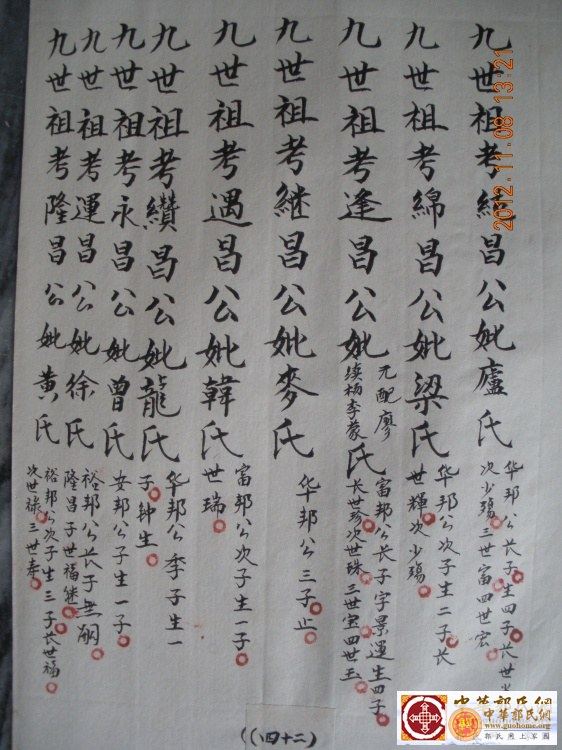 九世祖考统昌公妣盧氏
华邦公长子生四子长世
次少殇三世富四世宏
九世祖考綿昌公妣梁氏
华邦公次子生二子长
世輝次少殇
九世祖考逢昌公妣元配廖续杨李蒙氏
富邦公长子字景運生四子
长世珍次世珠三世宝四世玉
九世祖考継昌公妣麥氏
华邦公三子止
九世祖考遇昌公妣韓氏
富邦公次子生一子
世瑞
九世祖考纘昌公妣龍氏
华邦公季子生一
子钟生
九世祖考永昌公妣曾氏
安邦公子生一子
九世祖考運昌公妣徐氏
裕邦公长子無嗣
隆昌子世福継
九世祖考隆昌公妣黄氏
裕邦公次子生三子长世福
次世禄三世寿
((四十二
2012.11.08 13:21
中華郭氏網
www.guohome.org
郭氏网上家園